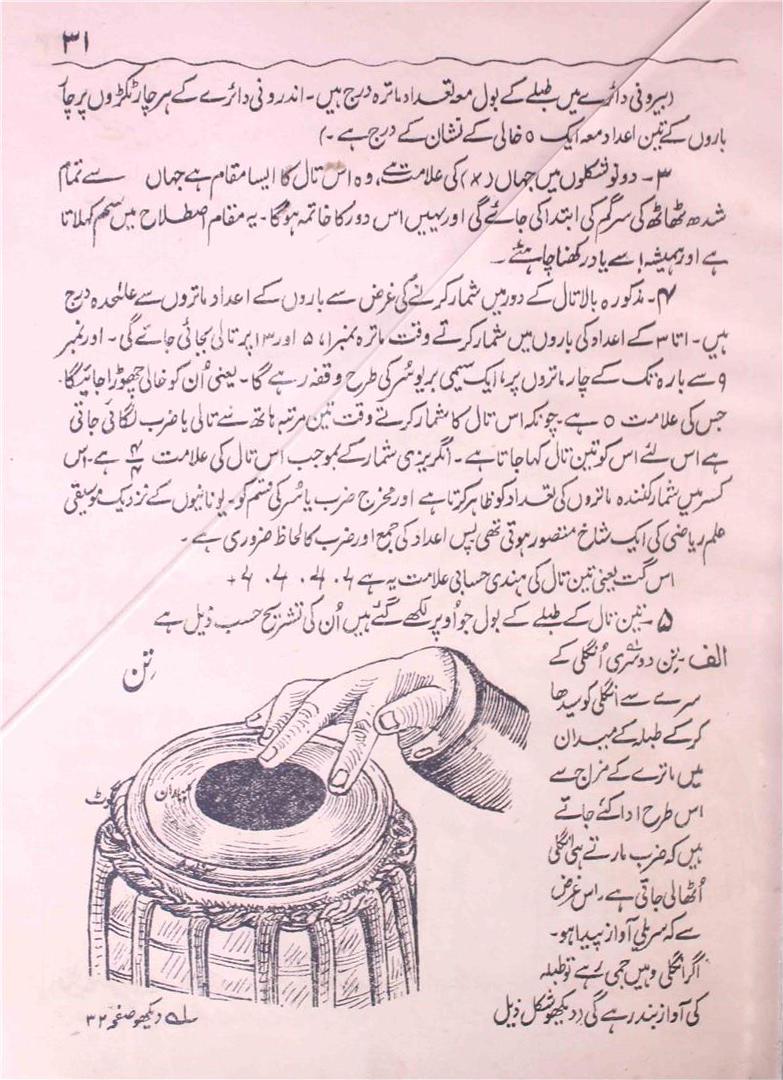 ۳۱
(بیرونی دائرے میں طبلے کے بول معہ تعداد ماترہ درج ہیں۔ اندرونی دائرے کے ہر چار ٹکڑوں پر چار
باروں کے تین اعداد معہ ایک ○ خالی کے نشان کے درج ہے۔)
۳۔ دونو شکلوں میں جہاں (×) کی علامت ہے، وہ اس تال کا ایسا مقام ہے جہاں سے تمام
شدھ ٹھاٹھ کی سرگم کی ابتدا کی جائے گی اور یہیں اس دور کا خاتمہ ہوگا۔ یہ مقام اصطلاح میں سَم کہلاتا
ہے اور ہمیشہ اسے یاد رکھنا چاہئے۔
۴۔ مذکورہ بالا تال کے دور میں شمار کرنے کی غرض سے باروں کے اعداد ماتروں سے علٰحدہ درج
ہیں۔ ۱ تا ۳ کے اعداد کی باروں میں شمار کرتے وقت ماترہ نمبر ۱، ۵ اور ۱۳ پر تالی بجائی جائے گی۔ اور نمبر
۹ سے بارہ تک کے چار ماتروں پر، ایک سیمی بریو سُر کی طرح وقفہ رہے گا۔ یعنی اُن کو خالی چھوڑا جائیگا۔
جس کی علامت ○ ہے۔ چونکہ اس تال کا شمار کرتے وقت تین مرتبہ ہاتھ سے تالی یا ضرب لگائی جاتی
ہے اس لئے اس کو تین تال کہا جاتا ہے۔ انگریزی شمار کے بموجب اس تال کی علامت ۴/۴ ہے۔ اس
کسر میں شمار کنندہ ماتروں کی تعداد کو ظاہر کرتا ہے اور مخرج ضرب یا سُر کی قسم کو۔ یونانیوں کے نزدیک موسیقی
علم ریاضی کی ایک شاخ متصور ہوتی تھی پس اعداد کی جمع اور ضرب کا لحاظ ضروری ہے۔
اس گت یعنی تین تال کی ہندی حسابی علامت یہ ہے
۵۔ تین تال کے طبلے کے بول جو اُوپر لکھے گئے ہیں اُن کی تشریح حسب ذیل ہے
الف۔ تِن دوسری اُنگلی کے
سرے سے انگلی کو سیدھا
کرکے طبلہ کے میدان
میں ماترے کے مزاج سے
اس طرح ادا کئے جاتے
ہیں کہ ضرب مارتے ہی انگلی
اُٹھا لی جاتی ہے، اس غرض
سے کہ سریلی آواز پیدا ہو۔
اگر انگلی وہیں جمی رہے تو طبلہ
کی آواز بند رہے گی (دیکھو شکل ذیل
تِن
میدان
گوٹ
سلہ دیکھو صفحہ ۳۲